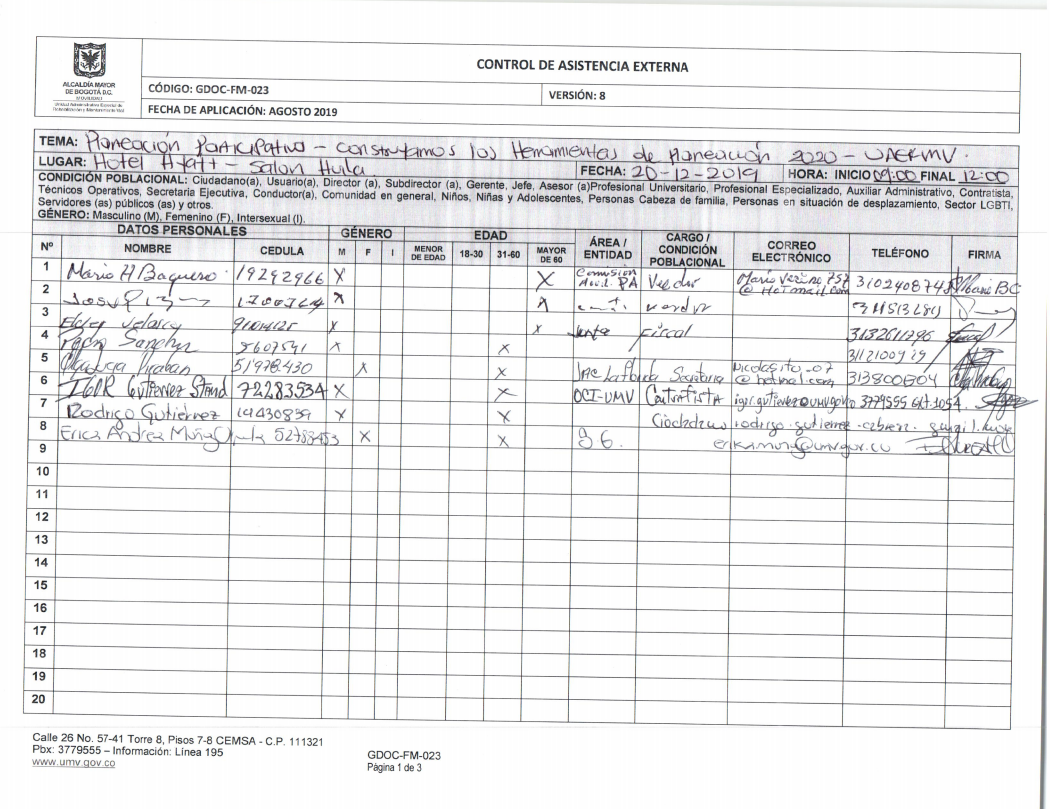 ALCALDÍA MAYOR
DE BOGOTÁ D.C.
MOVILIDAD
Unidad Administrativa Especial de
Rehabilitación y Mantenimiento Vial
CONTROL DE ASISTENCIA EXTERNA
CÓDIGO: GDOC-FM-023
VERSIÓN: 8
FECHA DE APLICACIÓN: AGOSTO 2019
TEMA: Planeación Participativa - construyamos las Herramientas de planeación 2020 - UAERMV.
LUGAR: Hotel Hyatt - Salon Huila FECHA: 20-12-2019 HORA: INICIO 09:00 FINAL 12:00
CONDICIÓN POBLACIONAL: Ciudadano(a), Usuario(a), Director (a), Subdirector (a), Gerente, Jefe, Asesor (a)Profesional Universitario, Profesional Especializado, Auxiliar Administrativo, Contratista,
Técnicos Operativos, Secretaria Ejecutiva, Conductor(a), Comunidad en general, Niños, Niñas y Adolescentes, Personas Cabeza de familia, Personas en situación de desplazamiento, Sector LGBTI,
Servidores (as) públicos (as) y otros.
GÉNERO: Masculino (M), Femenino (F), Intersexual (I).
DATOS PERSONALES GÉNERO EDAD ÁREA / ENTIDAD CARGO / CONDICIÓN POBLACIONAL CORREO ELECTRÓNICO TELÉFONO FIRMA
Nº NOMBRE CEDULA M F I MENOR DE EDAD 18-30 31-60 MAYOR DE 60
1 Mario H Baquero 19292966 X X Comision PA Veedor @Hotmail.com 3102408745
2 X X
3 X X Junta Fiscal 3132611796
4 Sanchez X X 3112100929
5 51978.430 X X Secretaria Nicolasito_07 @hotmail.com 313800604
6 IGOR GUTIERREZ STAND 72283534 X X OCI-UMV CONTRATISTA igor.gutierrez@umv.gov.co 3779555 ext.1054
7 Rodrigo Gutiérrez 19430839 X X rodrigo.gutierrez
8 Erica Andrea Muñoz 52783453 X X erika.munoz@umv.gov.co
9
10
11
12
13
14
15
16
17
18
19
20
Calle 26 No. 57-41 Torre 8, Pisos 7-8 CEMSA - C.P. 111321
Pbx: 3779555 – Información: Línea 195
www.umv.gov.co
GDOC-FM-023
Página 1 de 3